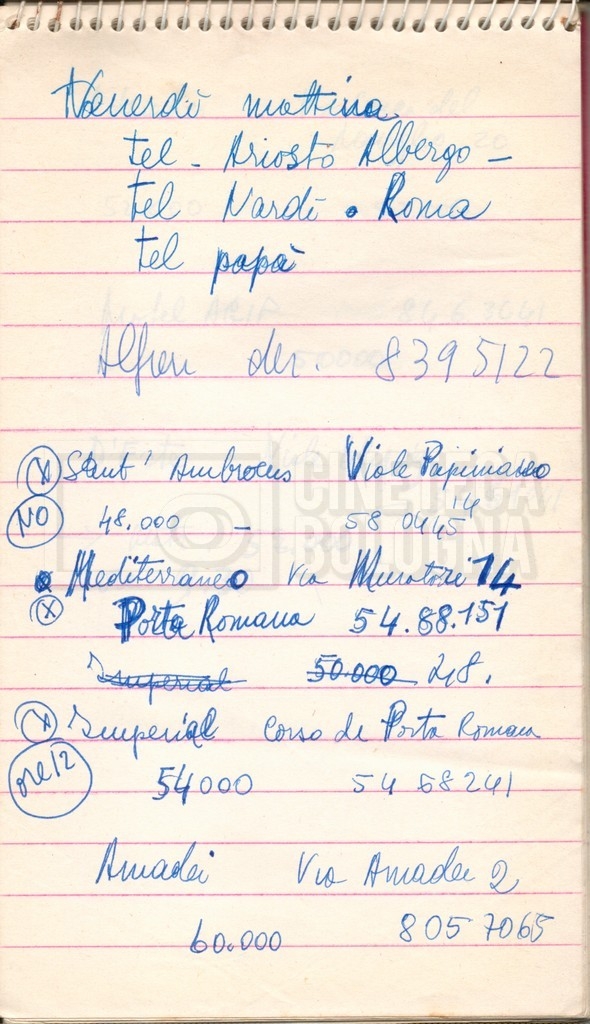 Venerdì mattina
tel - Ariosto Albergo -
tel Nardi . Roma
tel papà
der. 8395122
(X) Sant' Ambroeus Viale Papiniano
14
NO 48.000 - 58 04 45
Mediterraneo via Muratori 14
(X) Porta Romana 54.88.151
Imperial 50.000 248.
(X) Imperial Corso di Porta Romana
ore 12 54000 54 68241
Amadei Via Amadei 2
60.000 8057065
CINETECA
BOLOGNA